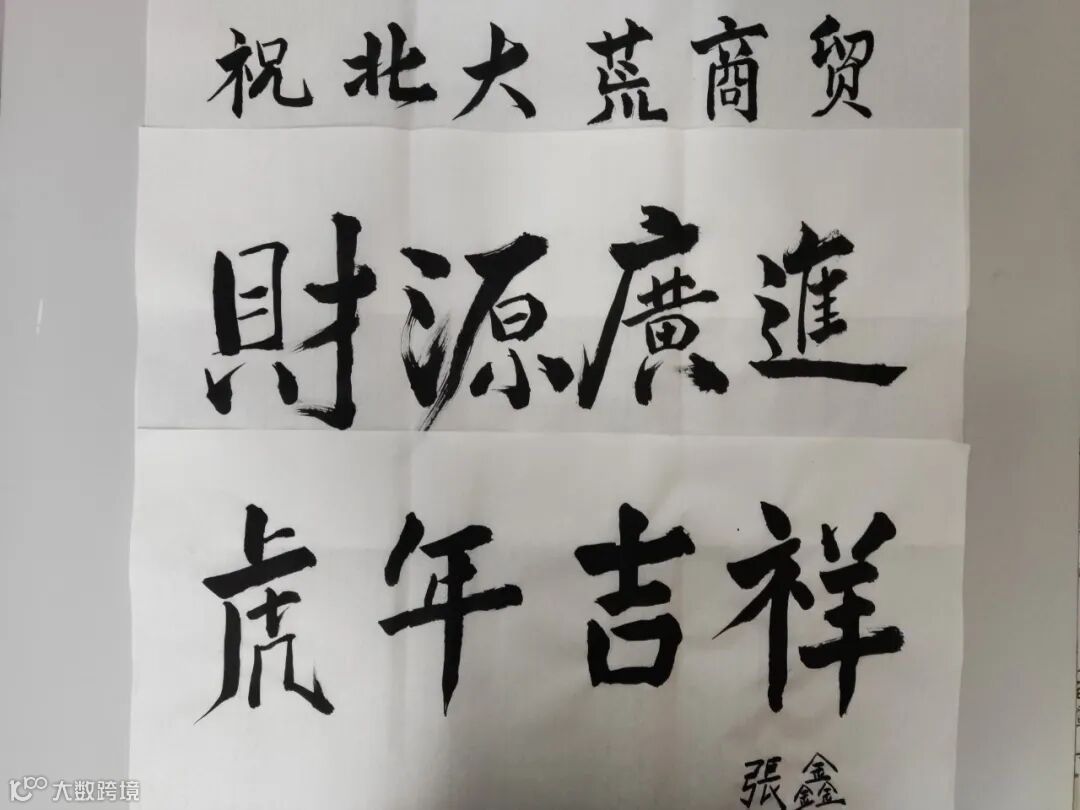 祝北大荒商贸
財源廣進
虎年吉祥
張鑫
大数跨境